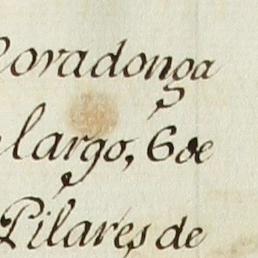 Covadonga
largo, 6 de
Pilares de